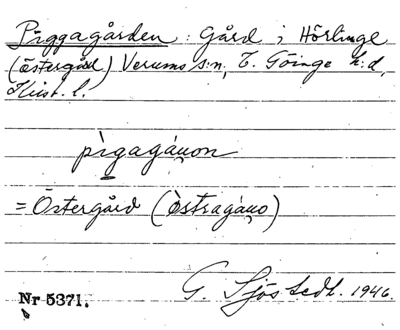 Piggagården : Gård i Hörlinge
(Östergård) Verums s:n, V. Göinge h:d,
Krist. l.
pigagá̤ṇon
= Östergård (östragáṇo)
G. Sjöstedt. 1946.
Nr 5371.